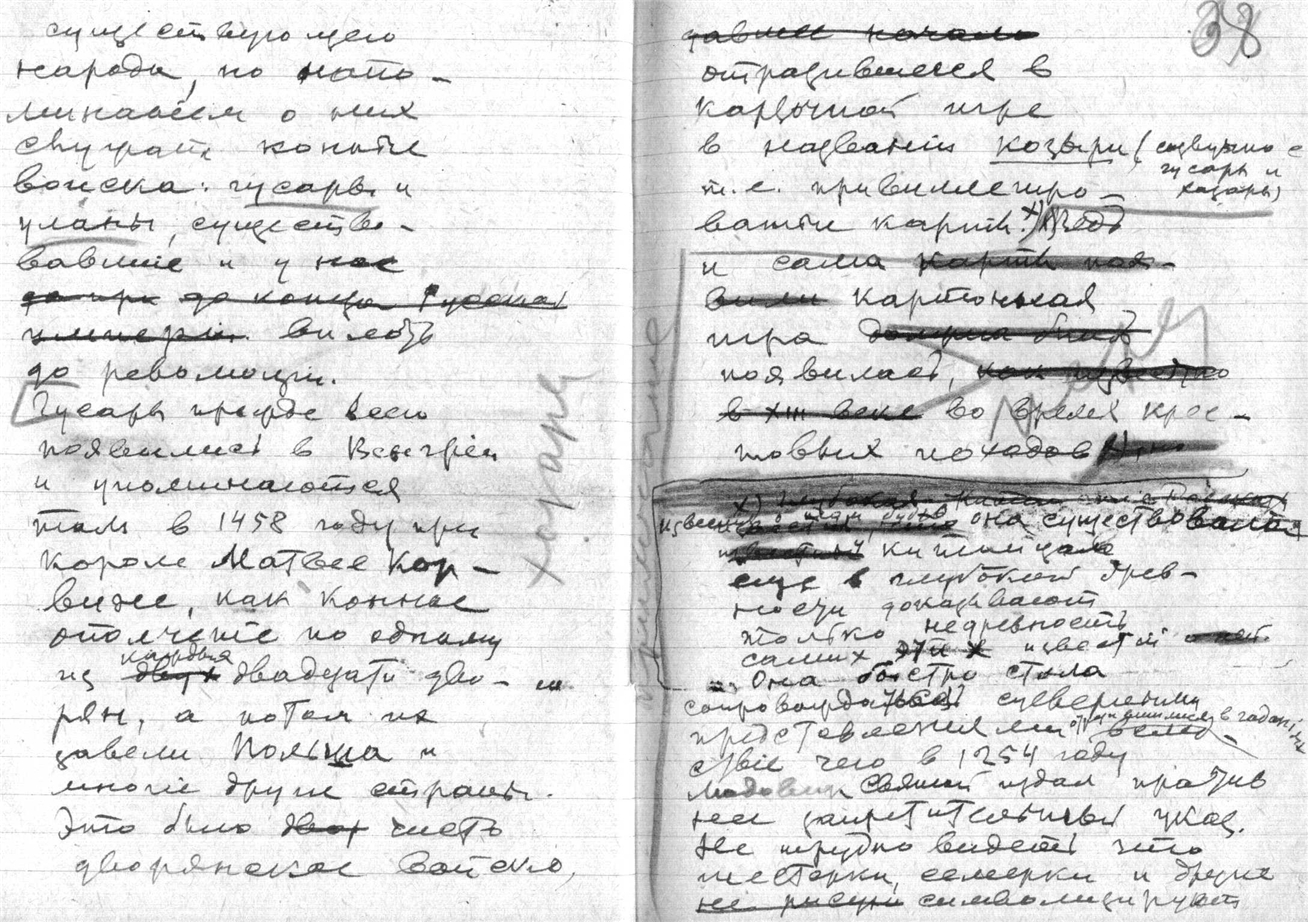 существующего
народа, но напо-
минанием о них
служат конные
войска: гусары и
уланы, существо-
вавшие и у нас
до конца Русской
империи. вплоть
до революции.
Гусары прежде всего
появились в Венгрии
и упоминаются
там в 1458 году при
короле Матвее Кор-
вине, как конное
ополчение по одному
каждых
из двух двадцати дво-
рян, а потом их
завели Польша и
многие другие страны.
Это было чисто
дворянское войско,
хазары
38
давшее начало
отразившееся в
карточной игре
в названии козыри (созвучно с
гусары и
хазары)
т.е. привиллегиро-
ванные карты. x) Ведь
и сама карты поя-
вили картонная
игра должна быть
появилась, как известно
в XIII веке во время крес-
товых походов
примечание
x)
она существовала
известный китайцам
еще в глубокой древ-
ности доказывают
только недревность
самих этих известий
Она быстро стала
сопровождаться суеверными
представлениями в гадании
вслед-
ствие чего в 1254 году
Людовик Святой издал против
нее запретительный указ.
Не трудно видеть что
шестерки, семерки и другие
не рисуя символизируют